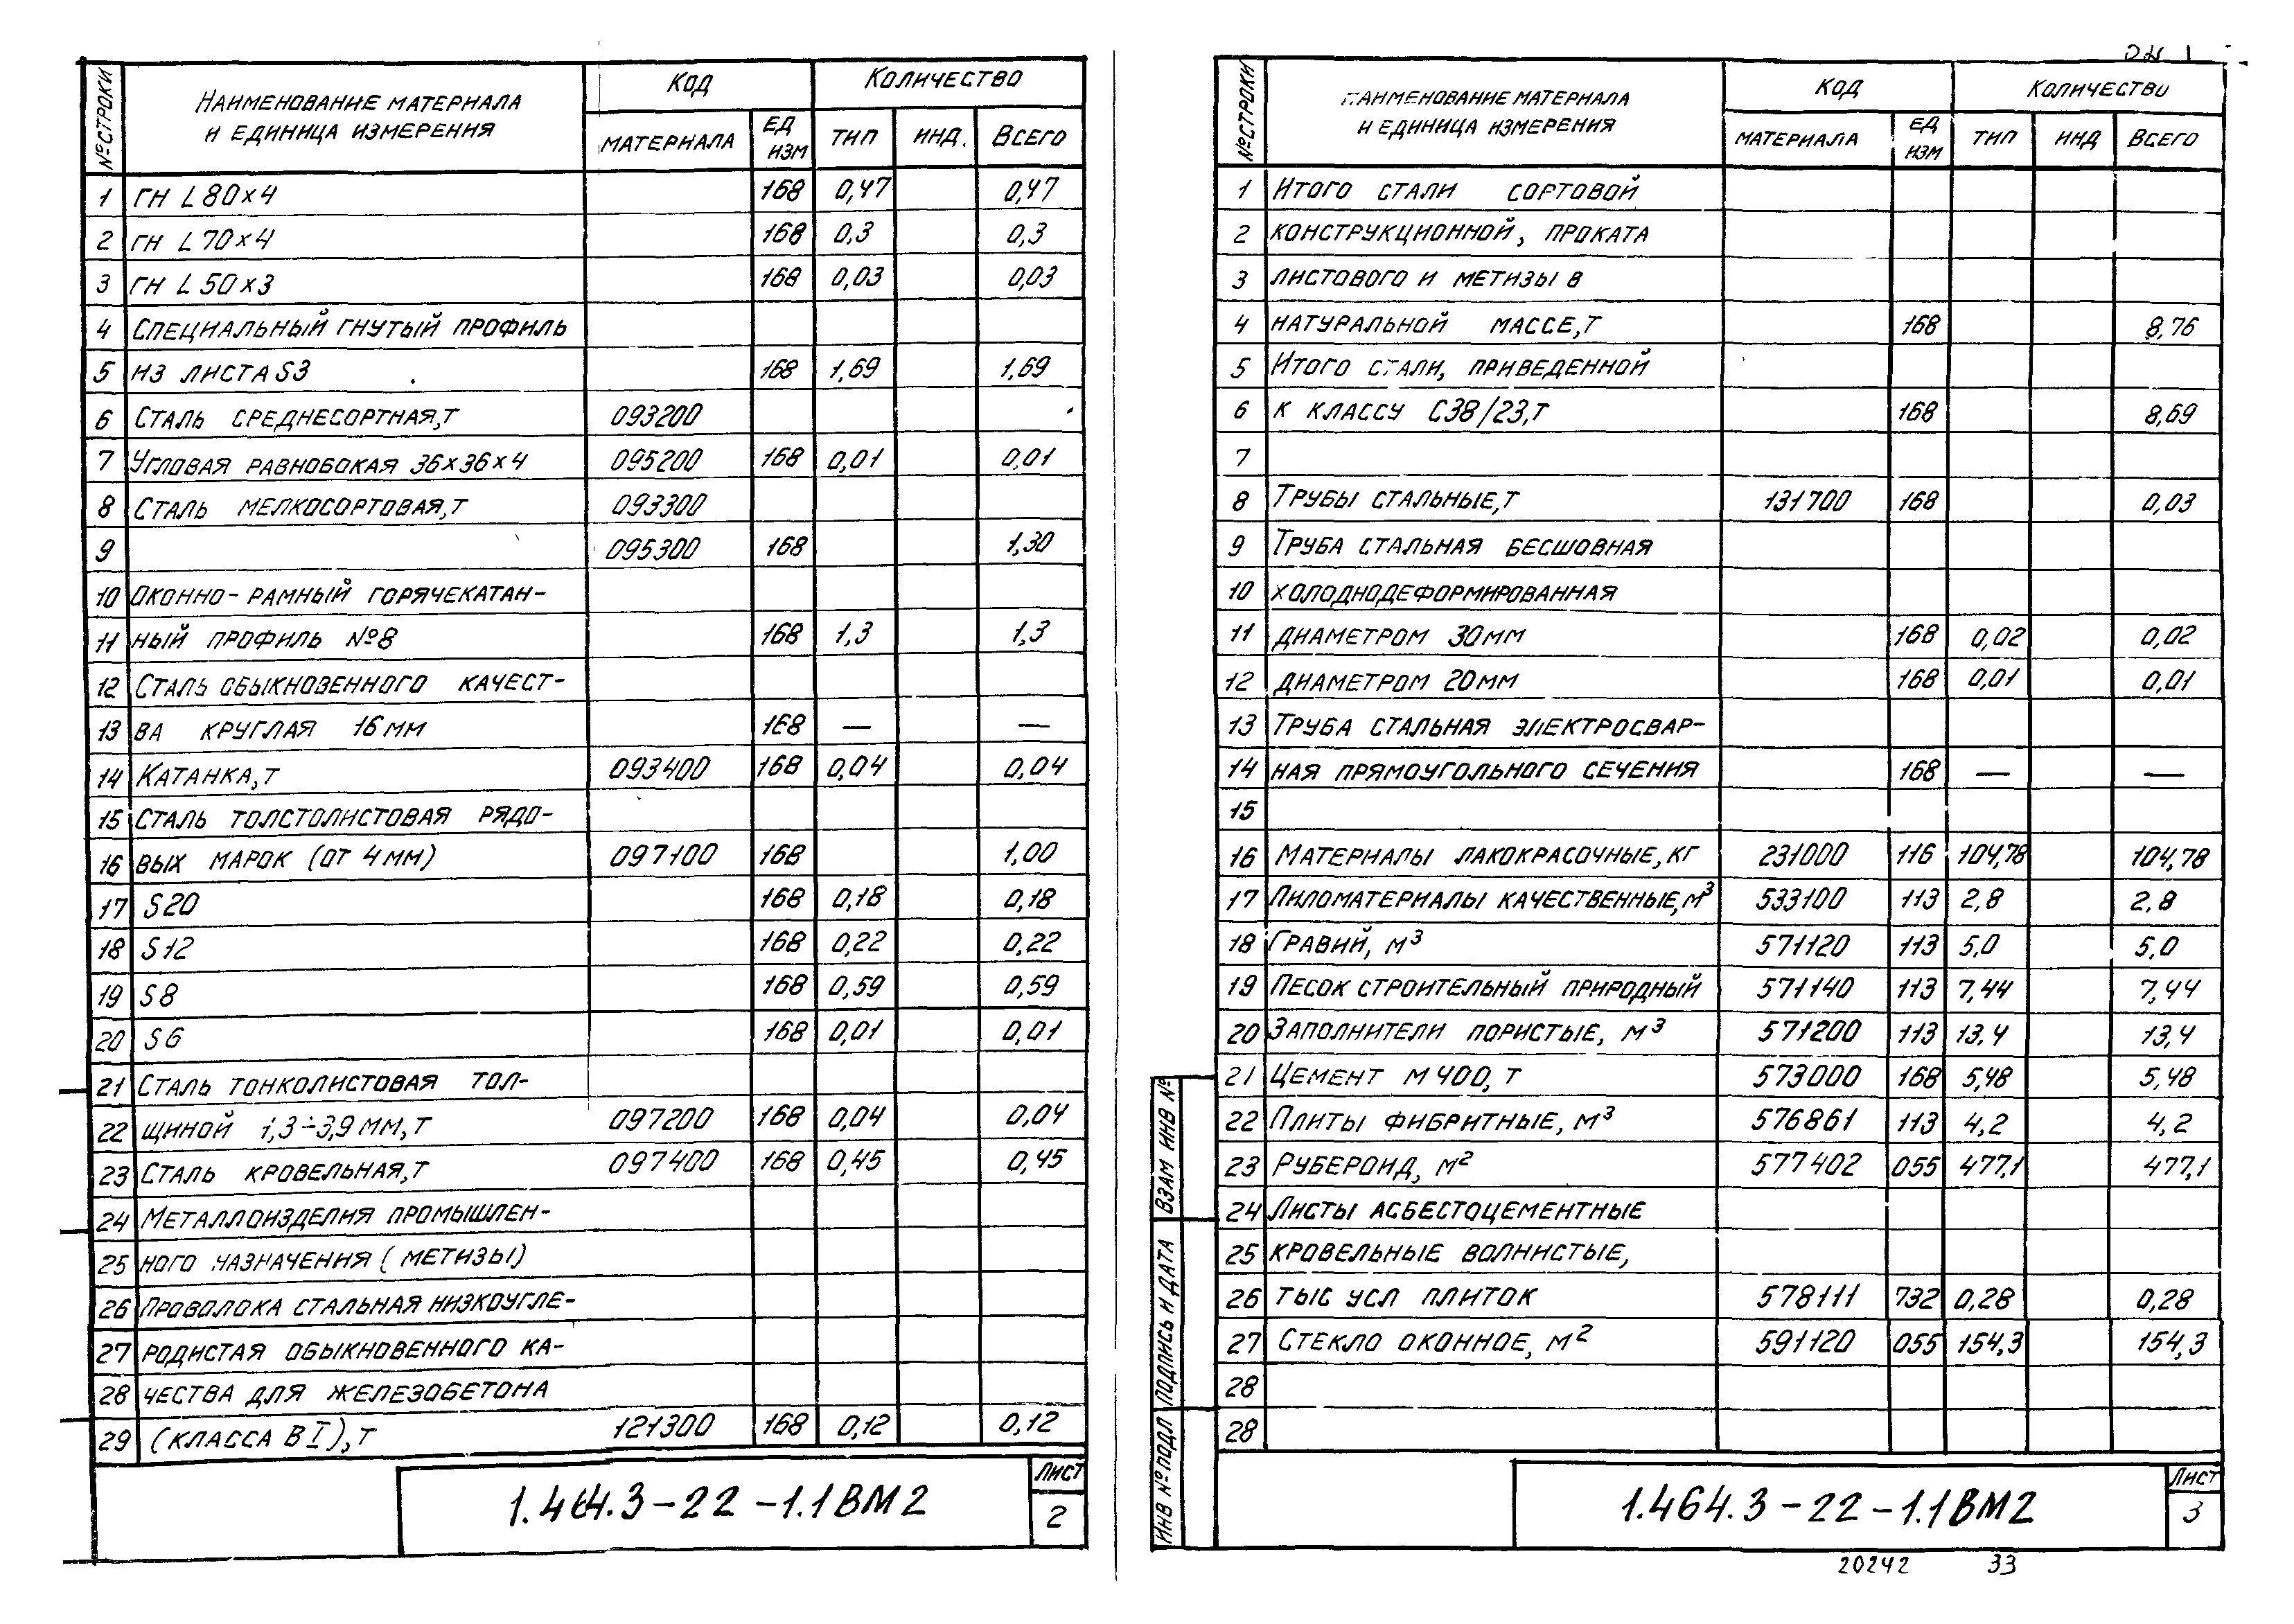 № СТРОКИ НАИМЕНОВАНИЕ МАТЕРИАЛА И ЕДИНИЦА ИЗМЕРЕНИЯ КОД КОЛИЧЕСТВО
МАТЕРИАЛА ЕД ИЗМ ТИП ИНД. ВСЕГО
1 ГН L 80×4 168 0,47 0,47
2 ГН L 70×4 168 0,3 0,3
3 ГН L 50×3 168 0,03 0,03
4 СПЕЦИАЛЬНЫЙ ГНУТЫЙ ПРОФИЛЬ
5 ИЗ ЛИСТА S3 168 1,69 1,69
6 СТАЛЬ СРЕДНЕСОРТНАЯ,Т 093200
7 УГЛОВАЯ РАВНОБОКАЯ 36×36×4 095200 168 0,01 0,01
8 СТАЛЬ МЕЛКОСОРТОВАЯ,Т 093300
9 095300 168 1,30
10 ОКОННО-РАМНЫЙ ГОРЯЧЕКАТАН-
11 НЫЙ ПРОФИЛЬ №8 168 1,3 1,3
12 СТАЛЬ ОБЫКНОВЕННОГО КАЧЕСТ-
13 ВА КРУГЛАЯ 16 ММ 168 — —
14 КАТАНКА,Т 093400 168 0,04 0,04
15 СТАЛЬ ТОЛСТОЛИСТОВАЯ РЯДО-
16 ВЫХ МАРОК (ОТ 4 ММ) 097100 168 1,00
17 S20 168 0,18 0,18
18 S12 168 0,22 0,22
19 S8 168 0,59 0,59
20 S6 168 0,01 0,01
21 СТАЛЬ ТОНКОЛИСТОВАЯ ТОЛ-
22 ЩИНОЙ 1,3÷3,9 ММ,Т 097200 168 0,04 0,04
23 СТАЛЬ КРОВЕЛЬНАЯ,Т 097400 168 0,45 0,45
24 МЕТАЛЛОИЗДЕЛИЯ ПРОМЫШЛЕН-
25 НОГО НАЗНАЧЕНИЯ (МЕТИЗЫ)
26 ПРОВОЛОКА СТАЛЬНАЯ НИЗКОУГЛЕ-
27 РОДИСТАЯ ОБЫКНОВЕННОГО КА-
28 ЧЕСТВА ДЛЯ ЖЕЛЕЗОБЕТОНА
29 (КЛАССА В I),Т 121300 168 0,12 0,12
1.464.3-22-1.1ВМ2
ЛИСТ
2
№ СТРОКИ НАИМЕНОВАНИЕ МАТЕРИАЛА И ЕДИНИЦА ИЗМЕРЕНИЯ КОД КОЛИЧЕСТВО
МАТЕРИАЛА ЕД ИЗМ ТИП ИНД ВСЕГО
1 ИТОГО СТАЛИ СОРТОВОЙ
2 КОНСТРУКЦИОННОЙ, ПРОКАТА
3 ЛИСТОВОГО И МЕТИЗЫ В
4 НАТУРАЛЬНОЙ МАССЕ,Т 168 8,76
5 ИТОГО СТАЛИ, ПРИВЕДЕННОЙ
6 К КЛАССУ С38/23,Т 168 8,69
7
8 ТРУБЫ СТАЛЬНЫЕ,Т 131700 168 0,03
9 ТРУБА СТАЛЬНАЯ БЕСШОВНАЯ
10 ХОЛОДНОДЕФОРМИРОВАННАЯ
11 ДИАМЕТРОМ 30 ММ 168 0,02 0,02
12 ДИАМЕТРОМ 20 ММ 168 0,01 0,01
13 ТРУБА СТАЛЬНАЯ ЭЛЕКТРОСВАР-
14 НАЯ ПРЯМОУГОЛЬНОГО СЕЧЕНИЯ 168 — —
15
16 МАТЕРИАЛЫ ЛАКОКРАСОЧНЫЕ, КГ 231000 116 104,78 104,78
17 ПИЛОМАТЕРИАЛЫ КАЧЕСТВЕННЫЕ, М³ 533100 113 2,8 2,8
18 ГРАВИЙ, М³ 571120 113 5,0 5,0
19 ПЕСОК СТРОИТЕЛЬНЫЙ ПРИРОДНЫЙ 571140 113 7,44 7,44
20 ЗАПОЛНИТЕЛИ ПОРИСТЫЕ, М³ 571200 113 13,4 13,4
21 ЦЕМЕНТ М 400, Т 573000 168 5,48 5,48
22 ПЛИТЫ ФИБРИТНЫЕ, М³ 576861 113 4,2 4,2
23 РУБЕРОИД, М² 577402 055 477,1 477,1
24 ЛИСТЫ АСБЕСТОЦЕМЕНТНЫЕ
25 КРОВЕЛЬНЫЕ ВОЛНИСТЫЕ,
26 ТЫС УСЛ ПЛИТОК 578111 732 0,28 0,28
27 СТЕКЛО ОКОННОЕ, М² 591120 055 154,3 154,3
28
28
ИНВ № ПОДЛ ПОДПИСЬ И ДАТА ВЗАМ ИНВ №
1.464.3-22-1.1ВМ2
ЛИСТ
3
20242 33